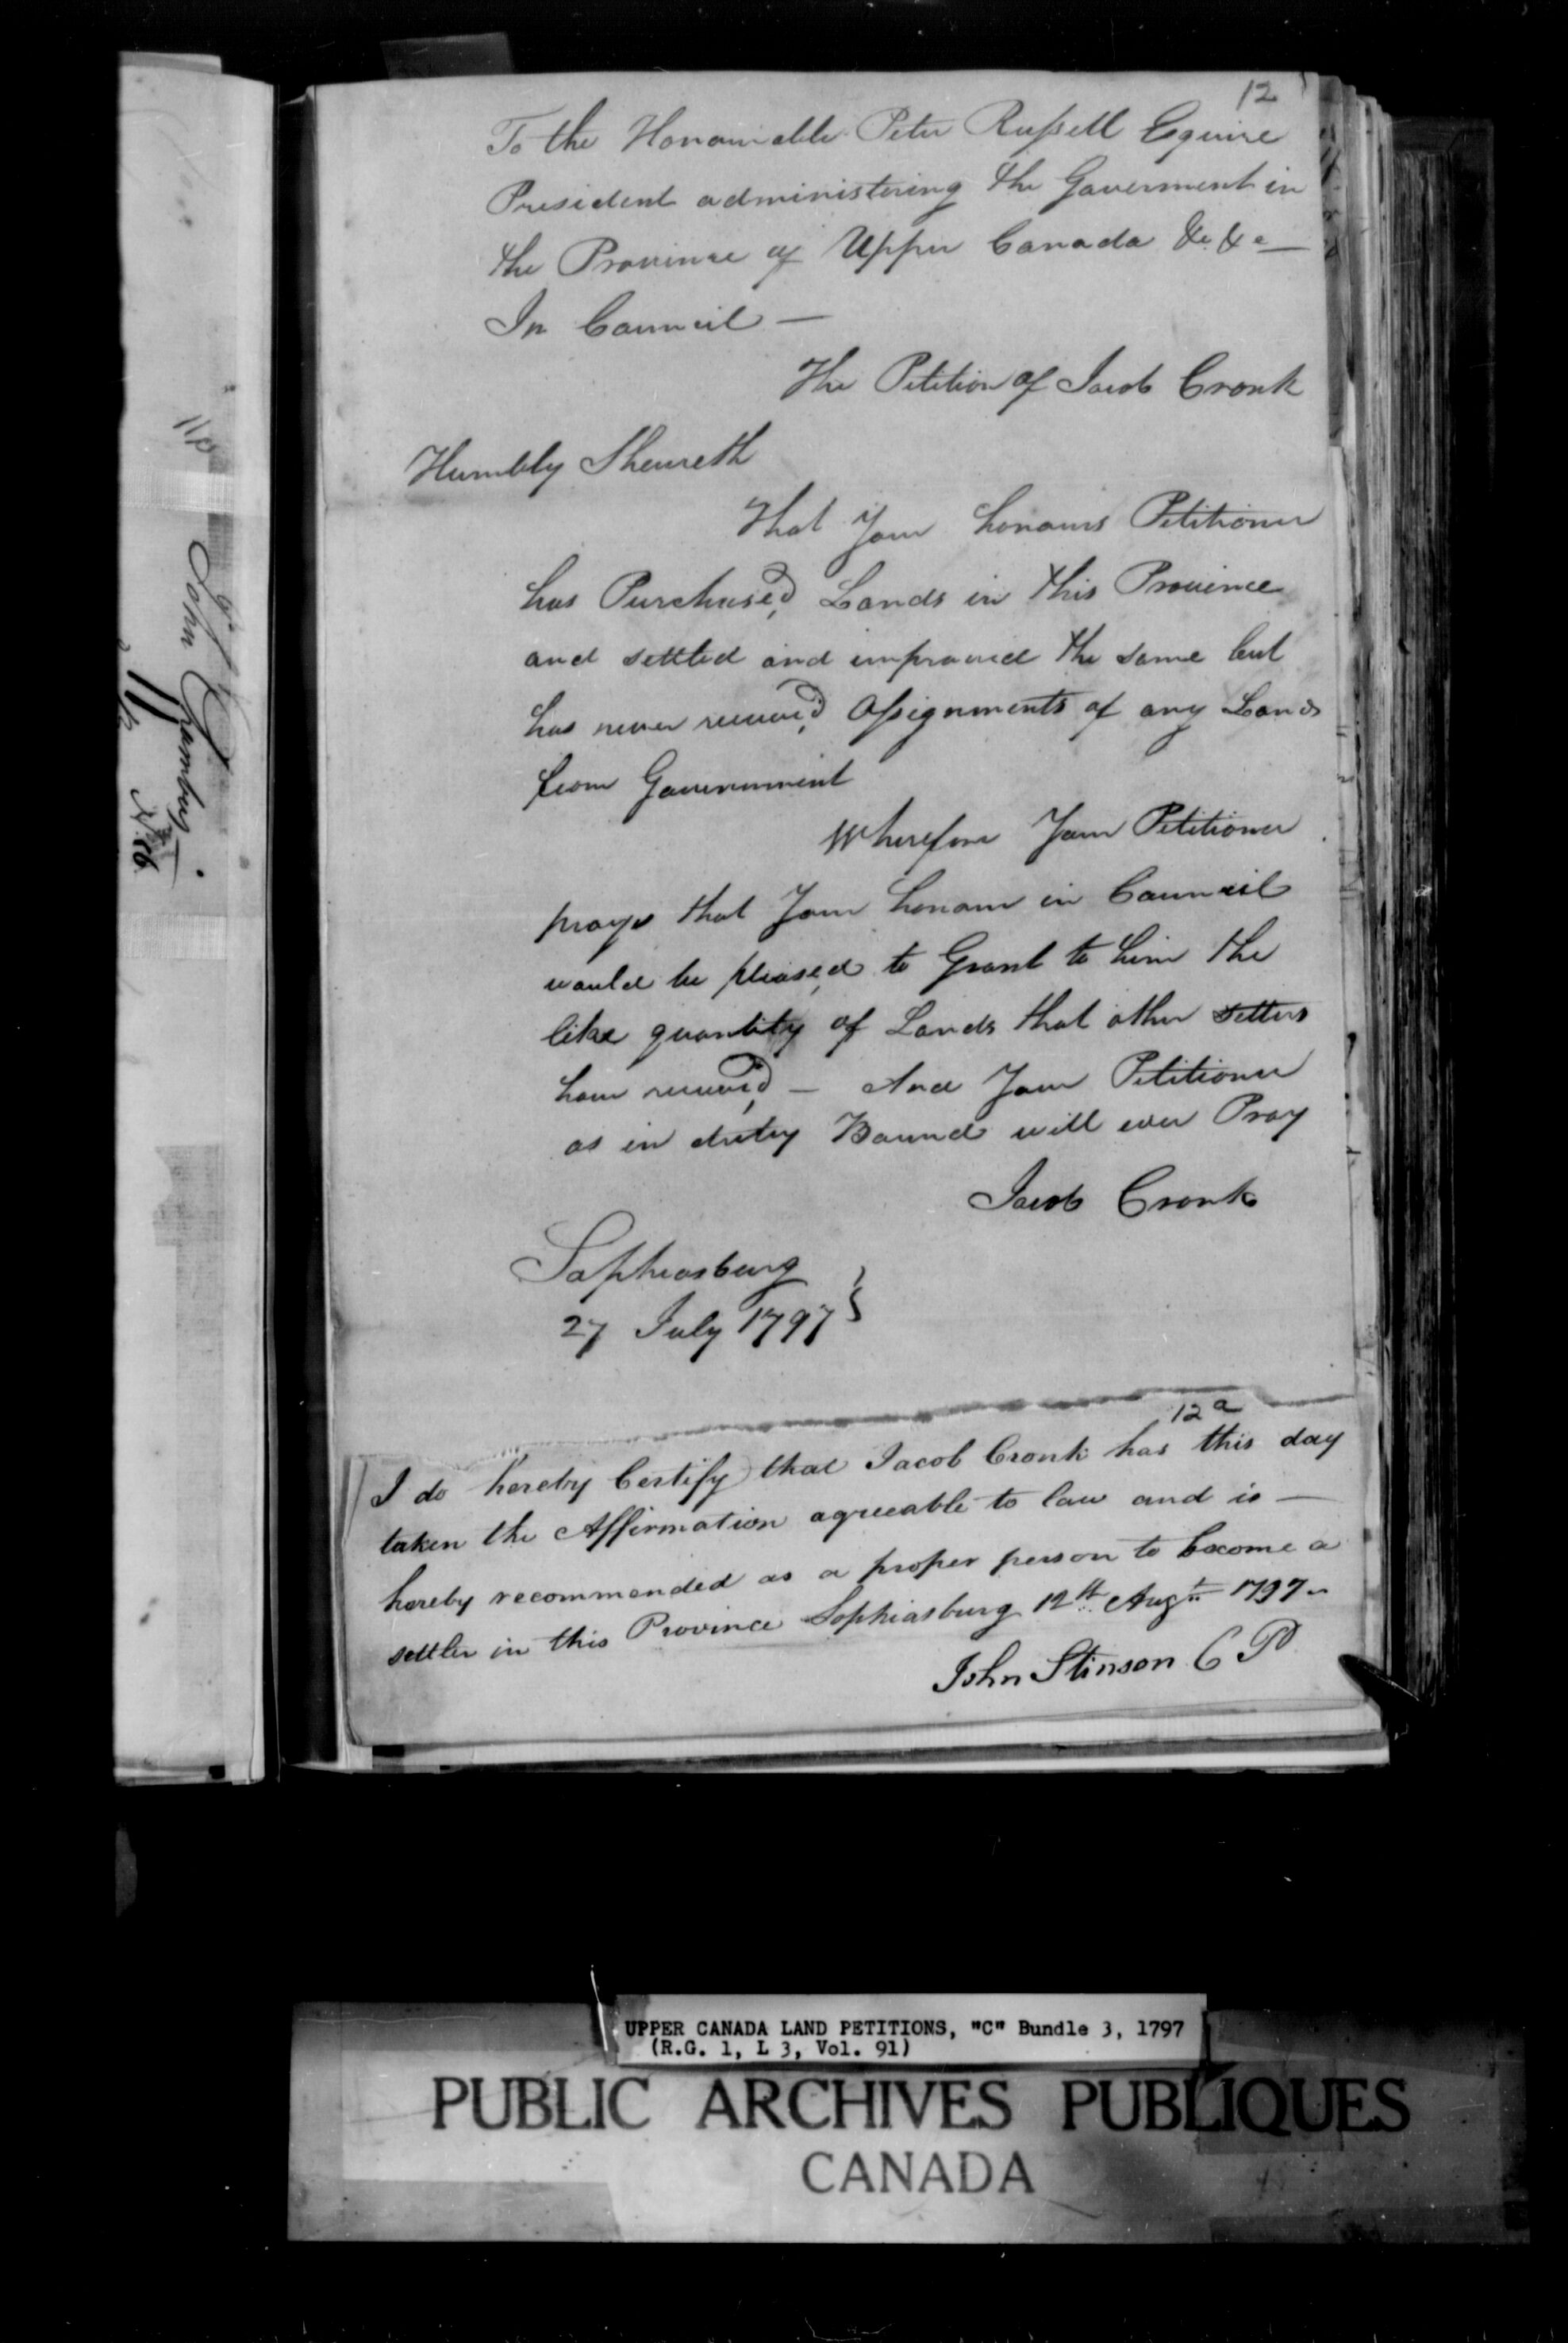 12
To the Honourable Peter Russell Esquire
President administering the Goverment in
the Province of Upper Canada &c &c —
In Council —
The Petition of Jacob Cronk
Humbly Sheweth
That Your honours Petitioner
has Purchased Lands in this Province
and settled and improved the same but
has never received Assignments of any Lands
from Government
Wherefore Your Petitioner
prays that Your honour in Council
would be pleased to Grant to him the
like quantity of Lands that other setters
have received — And Your Petitioner
as in duty Bound will ever Pray
Jacob Cronk
Sophiasburg
27 July 1797
12a
I do hereby Certify that Jacob Cronk has this day
taken the Affirmation agreeable to law and is —
hereby recommended as a proper person to become a
settler in this Province Sophiasburg 12th Augt 1797
John Stinson C P
11a
John
UPPER CANADA LAND PETITIONS, "C" Bundle 3, 1797
(R.G. 1, L 3, Vol. 91)
PUBLIC ARCHIVES PUBLIQUES
CANADA